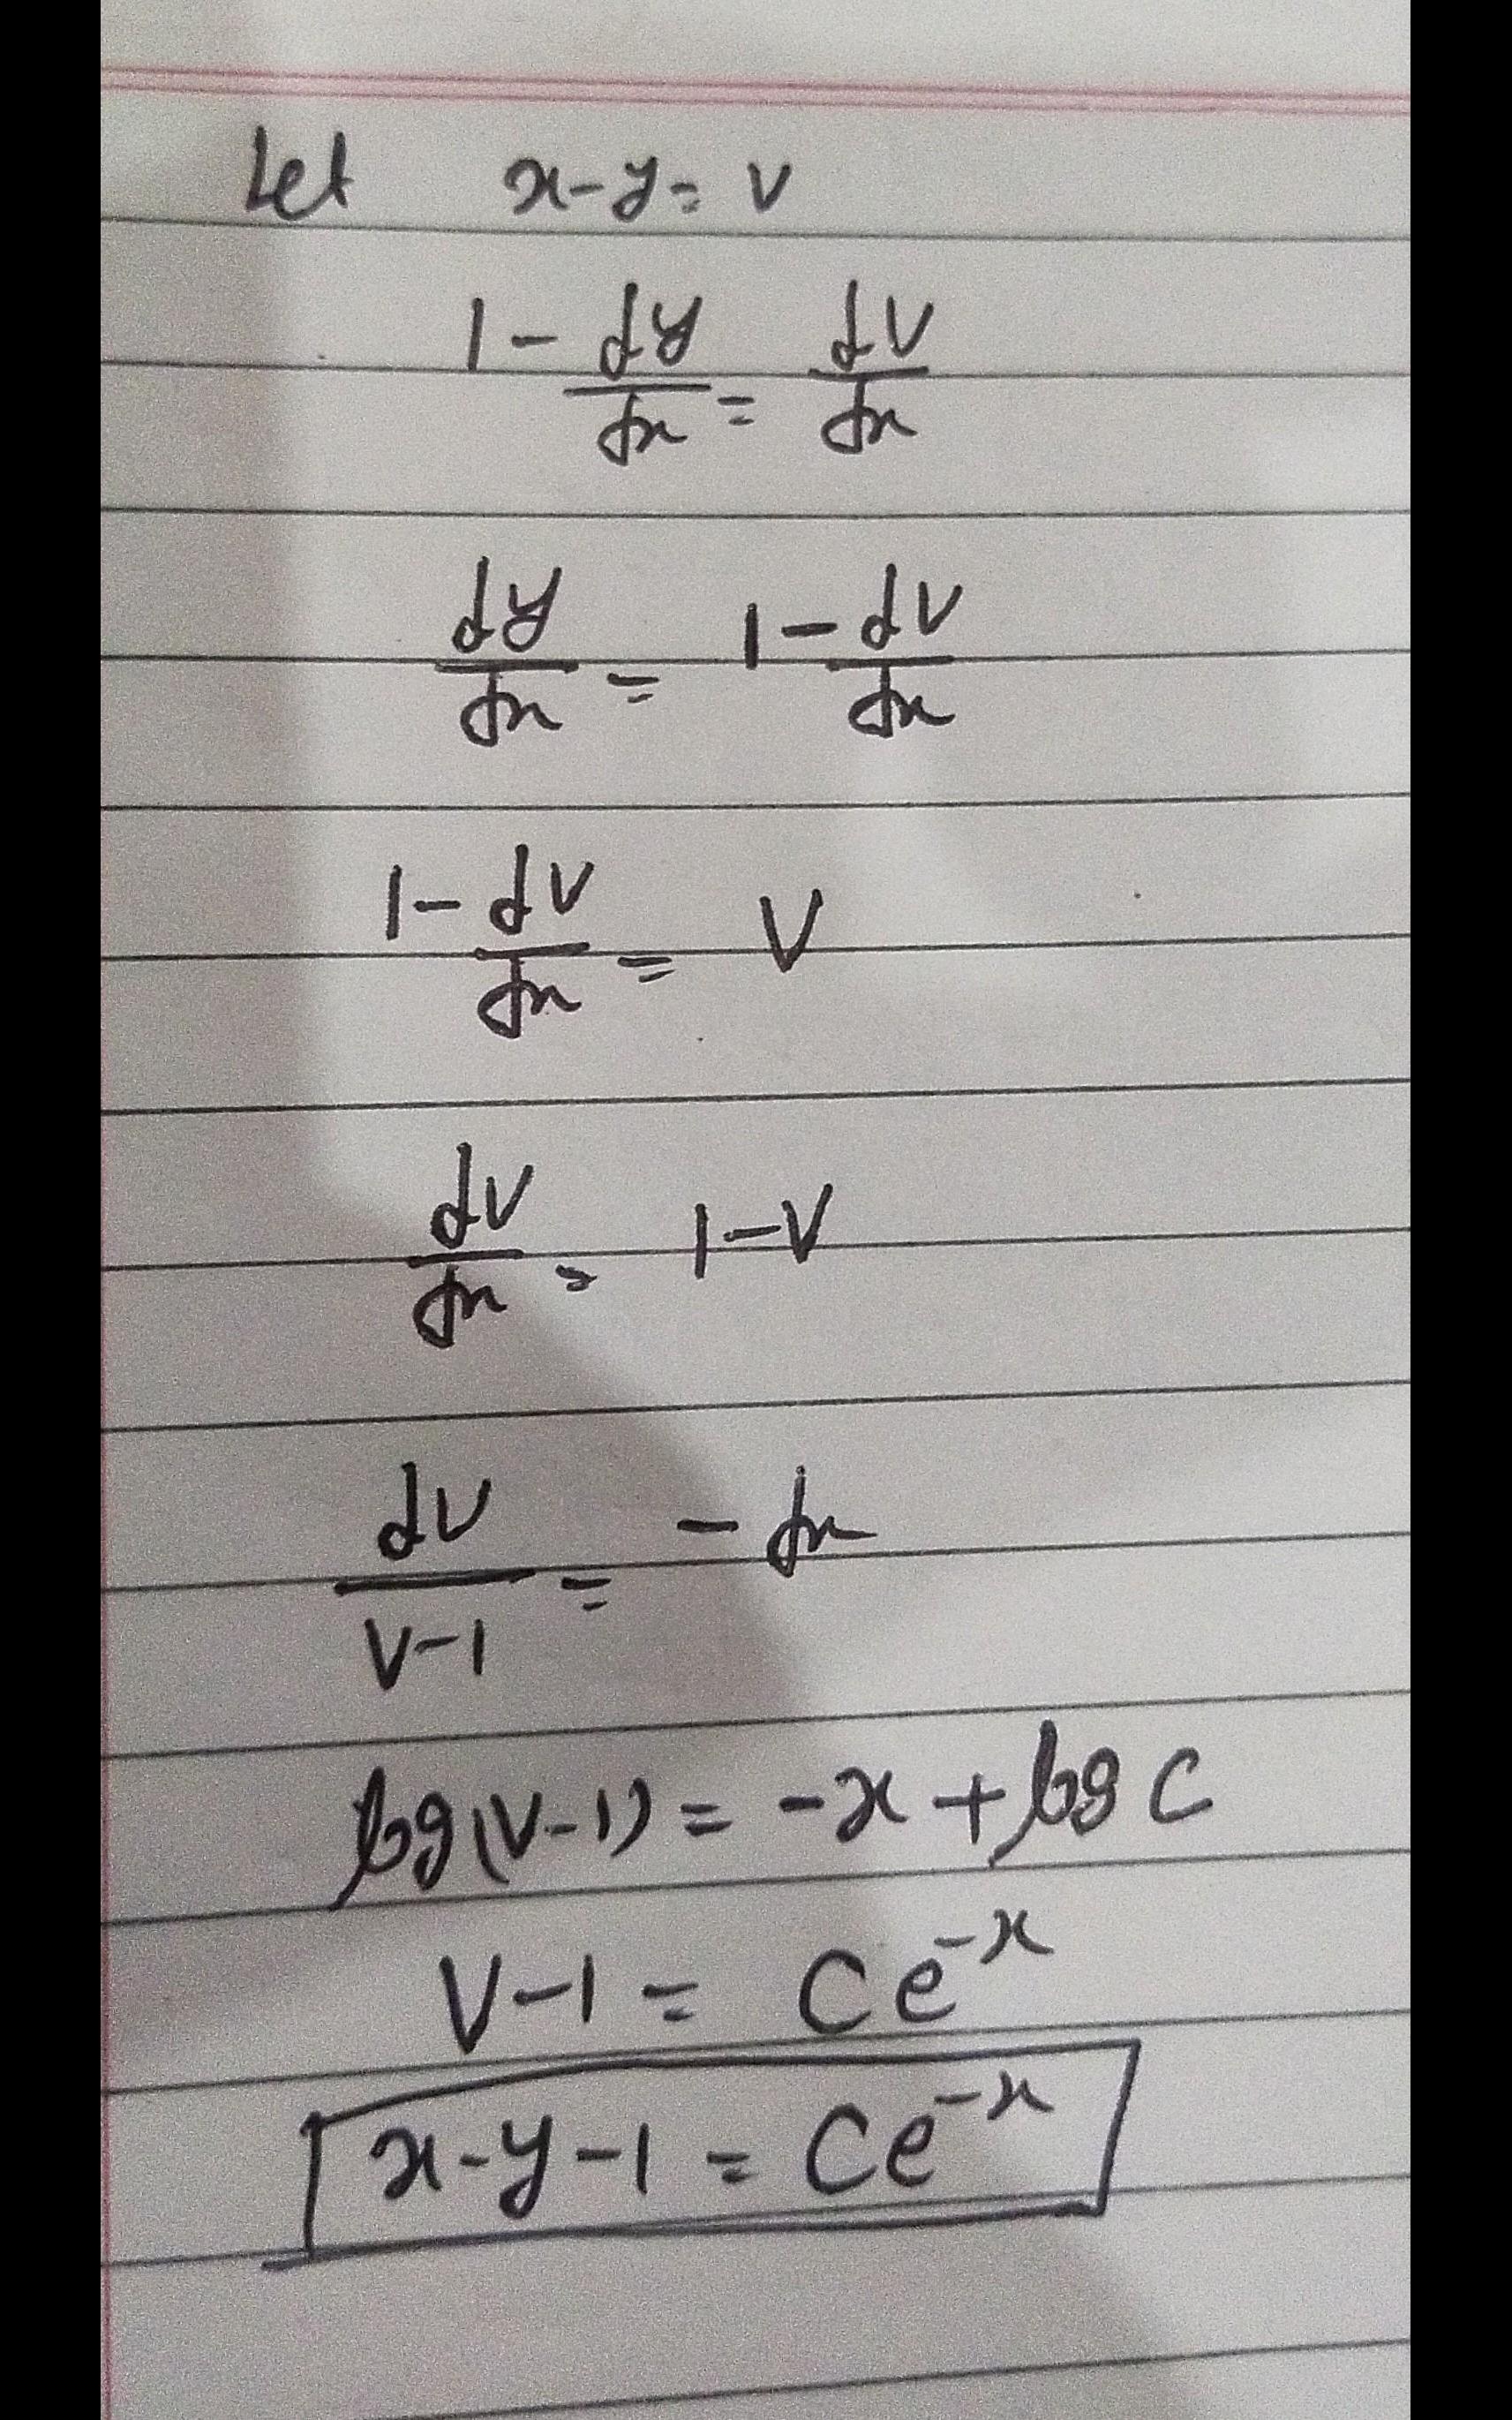 Let x-y = v
1 - dy/dx = dv/dx
dy/dx = 1 - dv/dx
1 - dv/dx = v
dv/dx = 1-v
dv/v-1 = - dx
log(v-1) = -x + log c
v-1 = ce^-x
x-y-1 = ce^-x